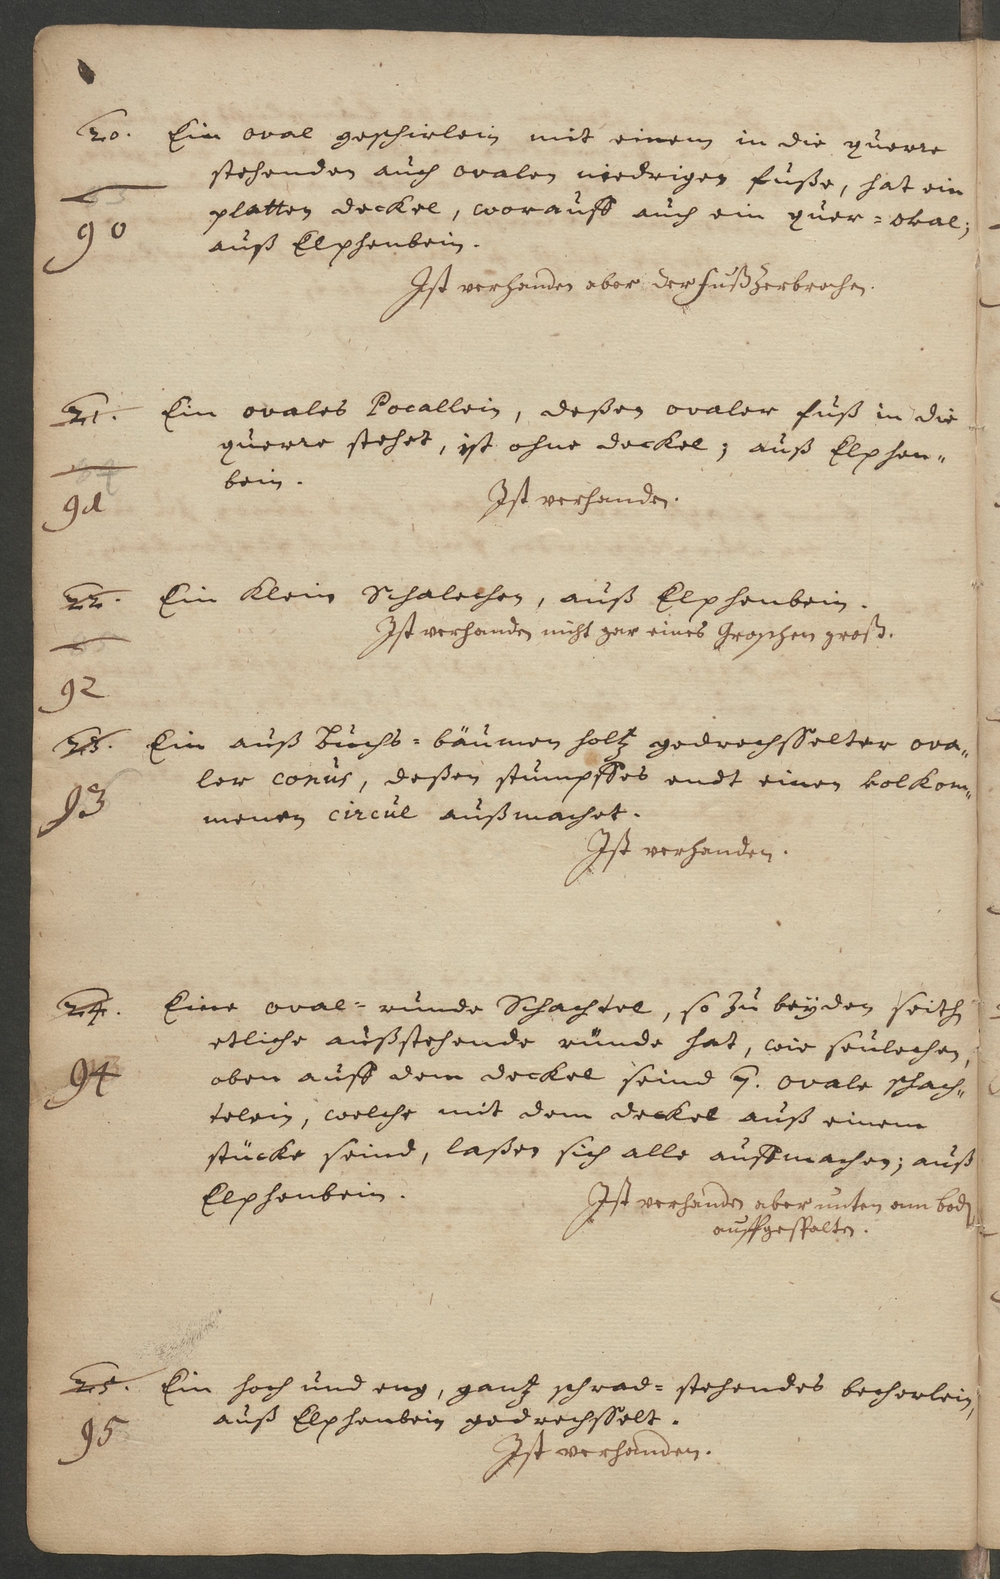 20. Ein oval geschirlein mit einem in die querre
stehenden auch ovalen niedrigen fuße, hat ein
90
platten deckel, worauff auch ein quer=oval;
auß Elphenbein.
Ist verhanden aber der fuß zerbrochen.
21. Ein ovales Pocallein, deßen ovaler fuß in die
querre stehet, ist ohne deckel; auß Elphen„
bein.
91
Ist verhanden.
22. Ein klein Schalechen, auß Elphenbein.
Ist verhanden nicht gar eines Groschen groß.
92
23. Ein auß Buchs=bäumen holtz gedrechsselter ova„
ler conus, deßen stumpffes endt einen volkom„
93
menen circul außmachet.
Ist verhanden.
24. Eine oval=runde Schachtel, so zu beÿden seith
etliche außstehende ründe hat, wie seulechen,
94
oben auff dem deckel seind 7. ovale schach„
telein, welche mit dem deckel auß einem
stücke seind, laßen sich alle auffmachen; auß
Elphenbein.
Ist verhanden aber unten am bod
auffgespalten.
25. Ein hoch und eng, gantz schrad=stehendes becherlein,
auß Elphenbein gedrechsselt.
95
Ist verhanden.